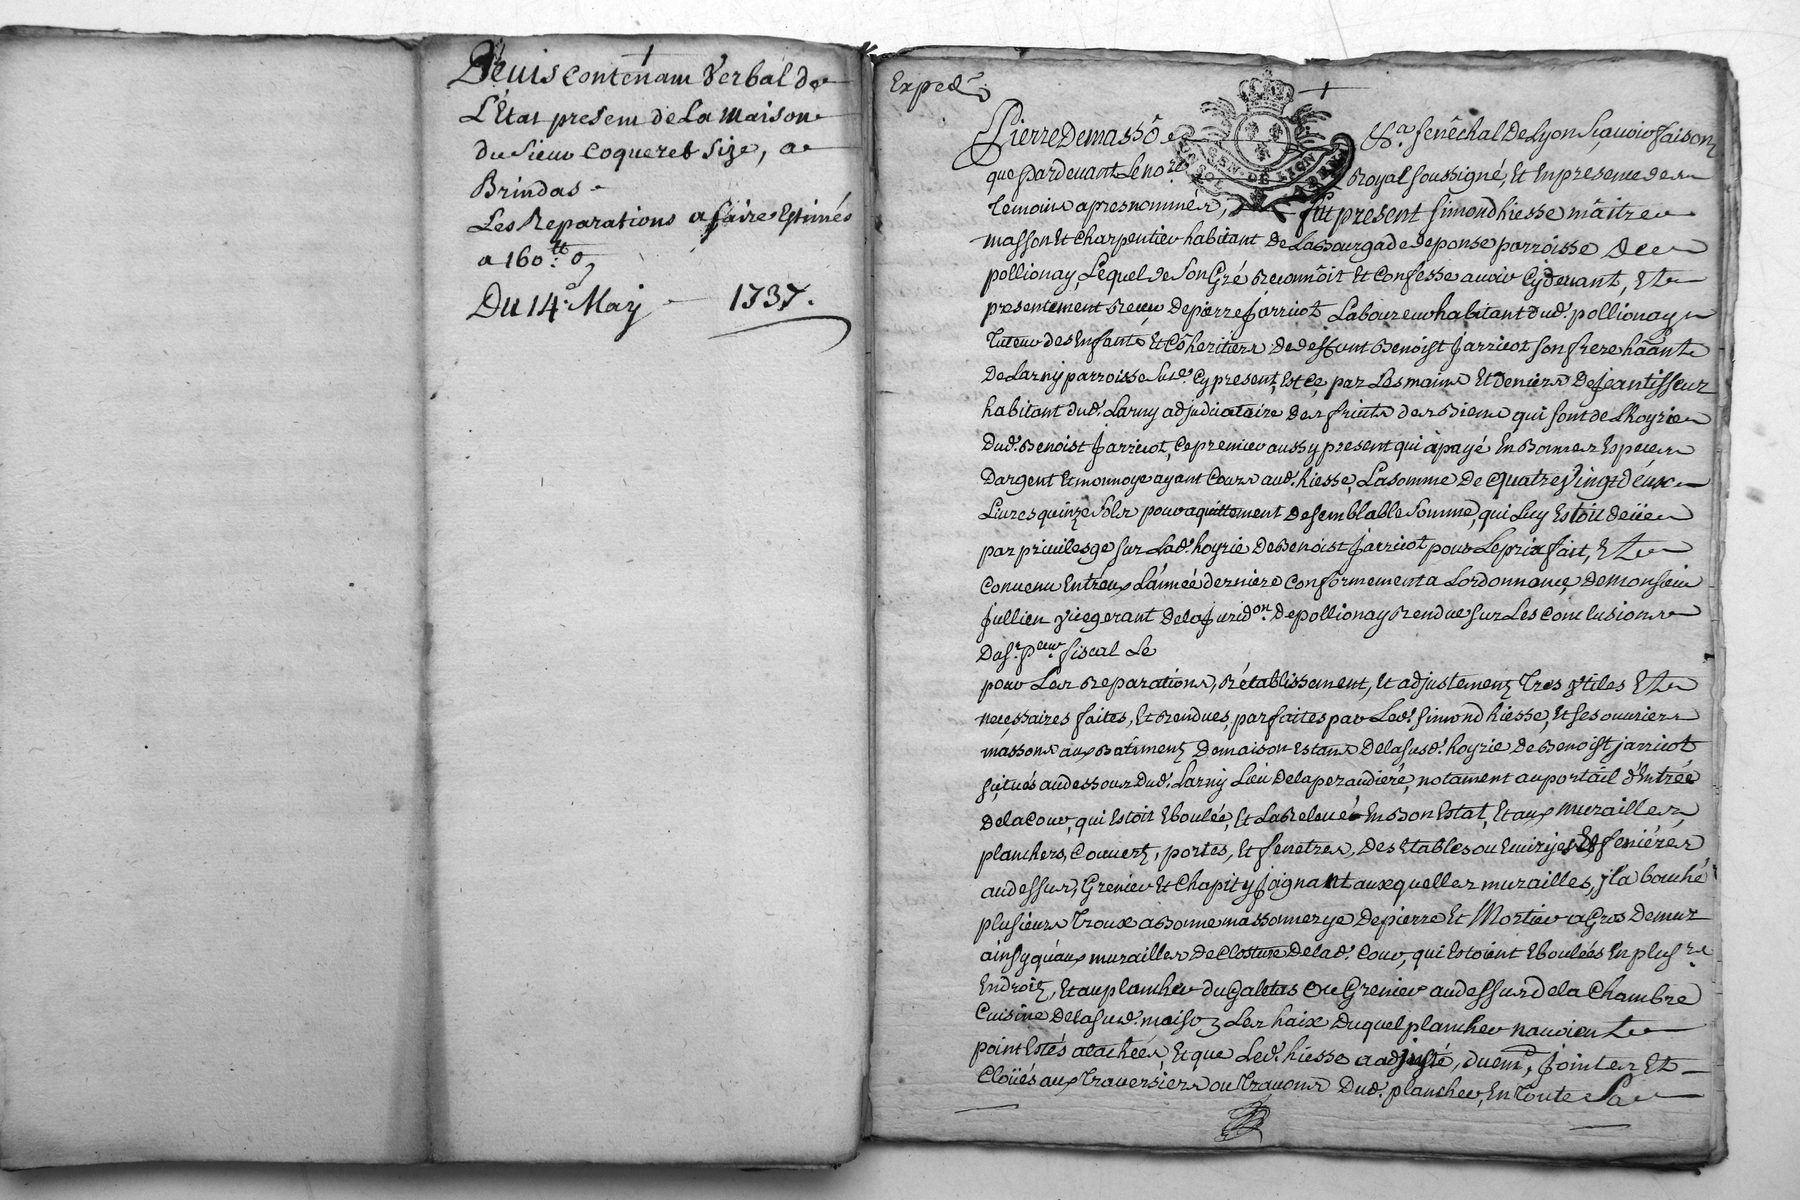 Devis contenam Verbal de
L'Etat present de La Maison
du Sieur Coqueret Size, a
Brindas
Les Reparations a faire Estimés
a 160:ᵗᵗ 0ˢ
Du 14ᵉ May 1737.
Exped.
GEN. DE LION
Pierre Demassô Sʳ. Senéchal de Lyon Sçavoir faisons
que pardevant Le noʳᵉ Royal soussigné, Et En presence des
Temoins apres nommés, fut present Simond hiesse maitre
masson Et Charpentier habitant de La Bourgade deponse parroisse de
pollionay, Lequel de Son Gré Reconnoit Et Confesse avoir Cydevant, Et
presentement Receu de pierre Jarricot Laboureur habitant dud. pollionay
Tuteur des Enfants Et Coheritiers de deffunt Benoist Jarricot son frere hâant
De Larny parroisse Sud. Cy present, Est Ce, par Les mains Et deniers de Jean tisseur
habitant dud. Larny adjudicataire des fruits des Biens qui sont de L'hoyrie
Dud. Benoist Jarricot, Ce premier aussy present qui à payé En Bonnes Especes
Dargent Et monnoye ayant Cours aud. hiesse, La somme de quatre Vingt deux
Livres quinze Sols pour aquittement de semblable Somme, qui Luy Estoit deüe
par privilesge sur Lad. hoyrie de Benoist Jarricot pour Le prix fait, Et
Convenu Entreux L'année derniere Conformement a Lordonnance de Monsieur
Jullien Vicegerant de la Juridᵒⁿ. De pollionay Rendue sur Les Conclusions
Du Sʳ. pᵉᵘʳ. fiscal Le
pour Les Reparations, Rétablissement, Et adjustements Tres Vtiles Et
necessaires faites, Et Rendues, parfaites par Led. Simond hiesse, Et ses ouvriers
massons aux Batiments De maison Estans de la susd. hoyrie de Benoist Jarricot
situés au dessous Dud. Larny Lieu de la peraudiere, notament au portail d'Entrée
De la Cour, qui Estoit Eboulée, Et La Relevée En Bon Estat, Et aux murailles,
planchers, Couverts, portes, Et fenetres, des Etables ou Ecuiryes Et feniéres
au dessus, Grenier Et Chapit y Joignant auxquelles murailles, jl a bouché
plusieurs Troux a Bonne massonnerye De pierre Et Mortier a Gros De mur
ainsy qu'aux murailles De Closture De lad. Cour, qui Estoient Eboulées En plusʳˢ
Endroits, Et au plancher du Galetas ou Grenier au dessus de la Chambre
Cuisine De la sud. maison Les haix Duquel plancher navoient
point Estés atachées, Et que Led. hiesse a adjusté, duemᵗ. Jointes Et
Cloüés aux Traversiers ou Travons Dud. plancher, En Toute Sa